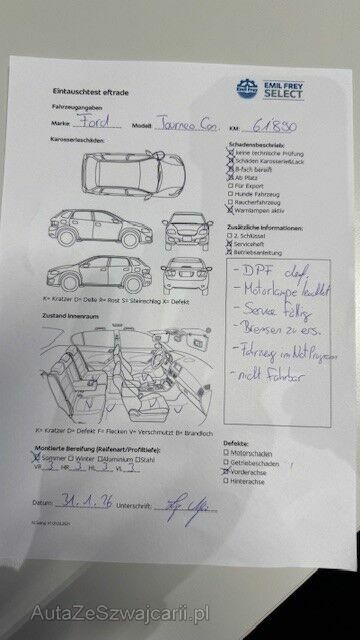 Eintauschtest eftrade
EMIL FREY
SELECT
Fahrzeugangaben
Marke: Ford Modell: Tourneo Con. KM: 61890
Karosserieschäden:
Schadensbeschrieb:
keine technische Prüfung
Schäden Karosserie&Lack
8-fach bereift
Ab Platz
Für Export
Hunde Fahrzeug
Raucherfahrzeug
Warnlampen aktiv
Zusätzliche Informationen:
2. Schlüssel
Serviceheft
Betriebsanleitung
K= Kratzer D= Delle R= Rost S= Steinschlag X= Defekt
- DPF def.
- Motorlampe leuchtet
- Service fällig
- Bremsen zu ers.
- Fahrzeug im Not Programm
- nicht Fahrbar
Zustand Innenraum
K= Kratzer D= Defekt F= Flecken V= Verschmutzt B= Brandloch
Montierte Bereifung (Reifenart/Profiltiefe):
Sommer Winter Aluminium Stahl
VR 3 HR 3 HL 3 VL 3
Defekte:
Motorschaden
Getriebeschaden
Vorderachse
Hinterachse
Datum: 31.1.26 Unterschrift:
AutaZeSzwajcarii.pl